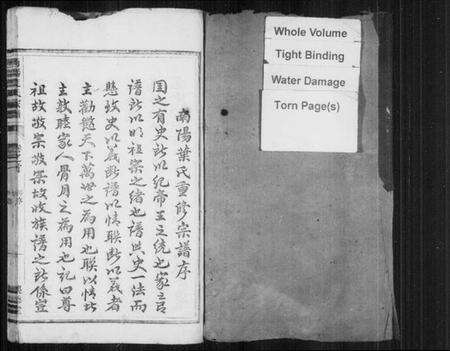 南陽葉氏重修宗譜序
国之有史所以紀帝王之統也家之有
譜所以明祖宗之緒也譜與史一法而
懸故史以義斷譜以情联断以義者
主勸懲天下萬世之為用也联以情者
主敦睦家人骨肉之為用也記曰尊
祖故敬宗敬宗故收族譜之所係豈
Whole Volume
Tight Binding
Water Damage
Torn Page(s)